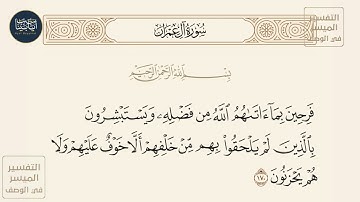 سُورَةُ آلِ عِمْرَانَ
التفسير
الميسر
في الوصف
بِسْمِ اللَّهِ الرَّحْمَٰنِ الرَّحِيمِ
فَرِحِينَ بِمَآ ءَاتَىٰهُمُ ٱللَّهُ مِن فَضْلِهِۦ وَيَسْتَبْشِرُونَ
بِٱلَّذِينَ لَمْ يَلْحَقُوا۟ بِهِم مِّنْ خَلْفِهِمْ أَلَّا خَوْفٌ عَلَيْهِمْ وَلَا
هُمْ يَحْزَنُونَ ١٧٠
التفسير
الميسر
في الوصف